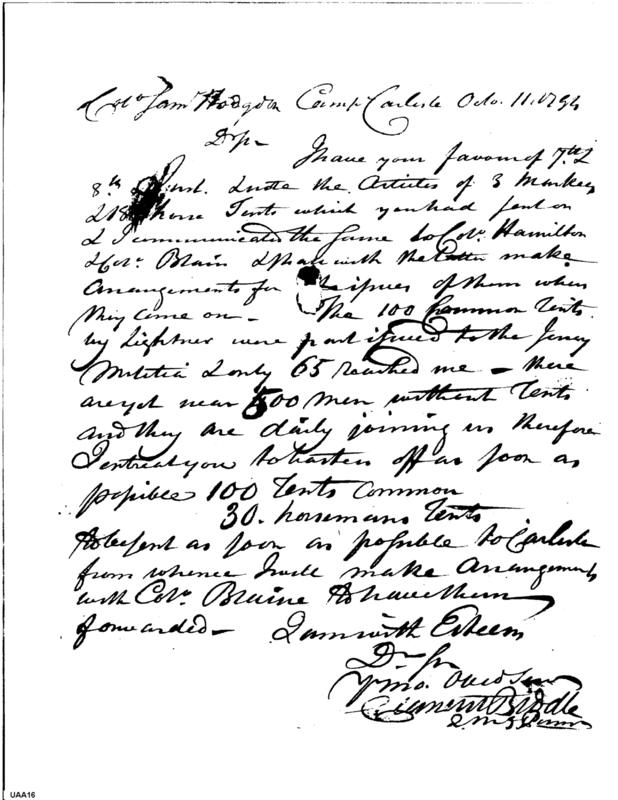 Colo. Saml. Hodgdon Camp Carlisle Octo. 11. 1794
Dr. Sr
I have your favour of 7th &
8th Inst. & note the Articles of 3 Markees
& 18 horse Tents which you had sent on
& I communicated the same to Colo. Hamilton
& Colo. Blain & shall with the latter make
Arrangements for the issues of them when
they come on — The 100 Common Tents
by Lightner were part issued to the Jersey
Militia & only 65 reached me — there
are yet near 500 Men without Tents
and they are daily joining us therefore
I entreat you to hasten off as soon as
possible 100 Tents Common
30. horsemans Tents
to be sent as soon as possible to Carlisle
from whence I will make Arrangements
with Colo. Blaine to have them
forwarded — I am with Esteem
Dr. Sr
Yr mo. Obed Serv
Clement Biddle
UAA16